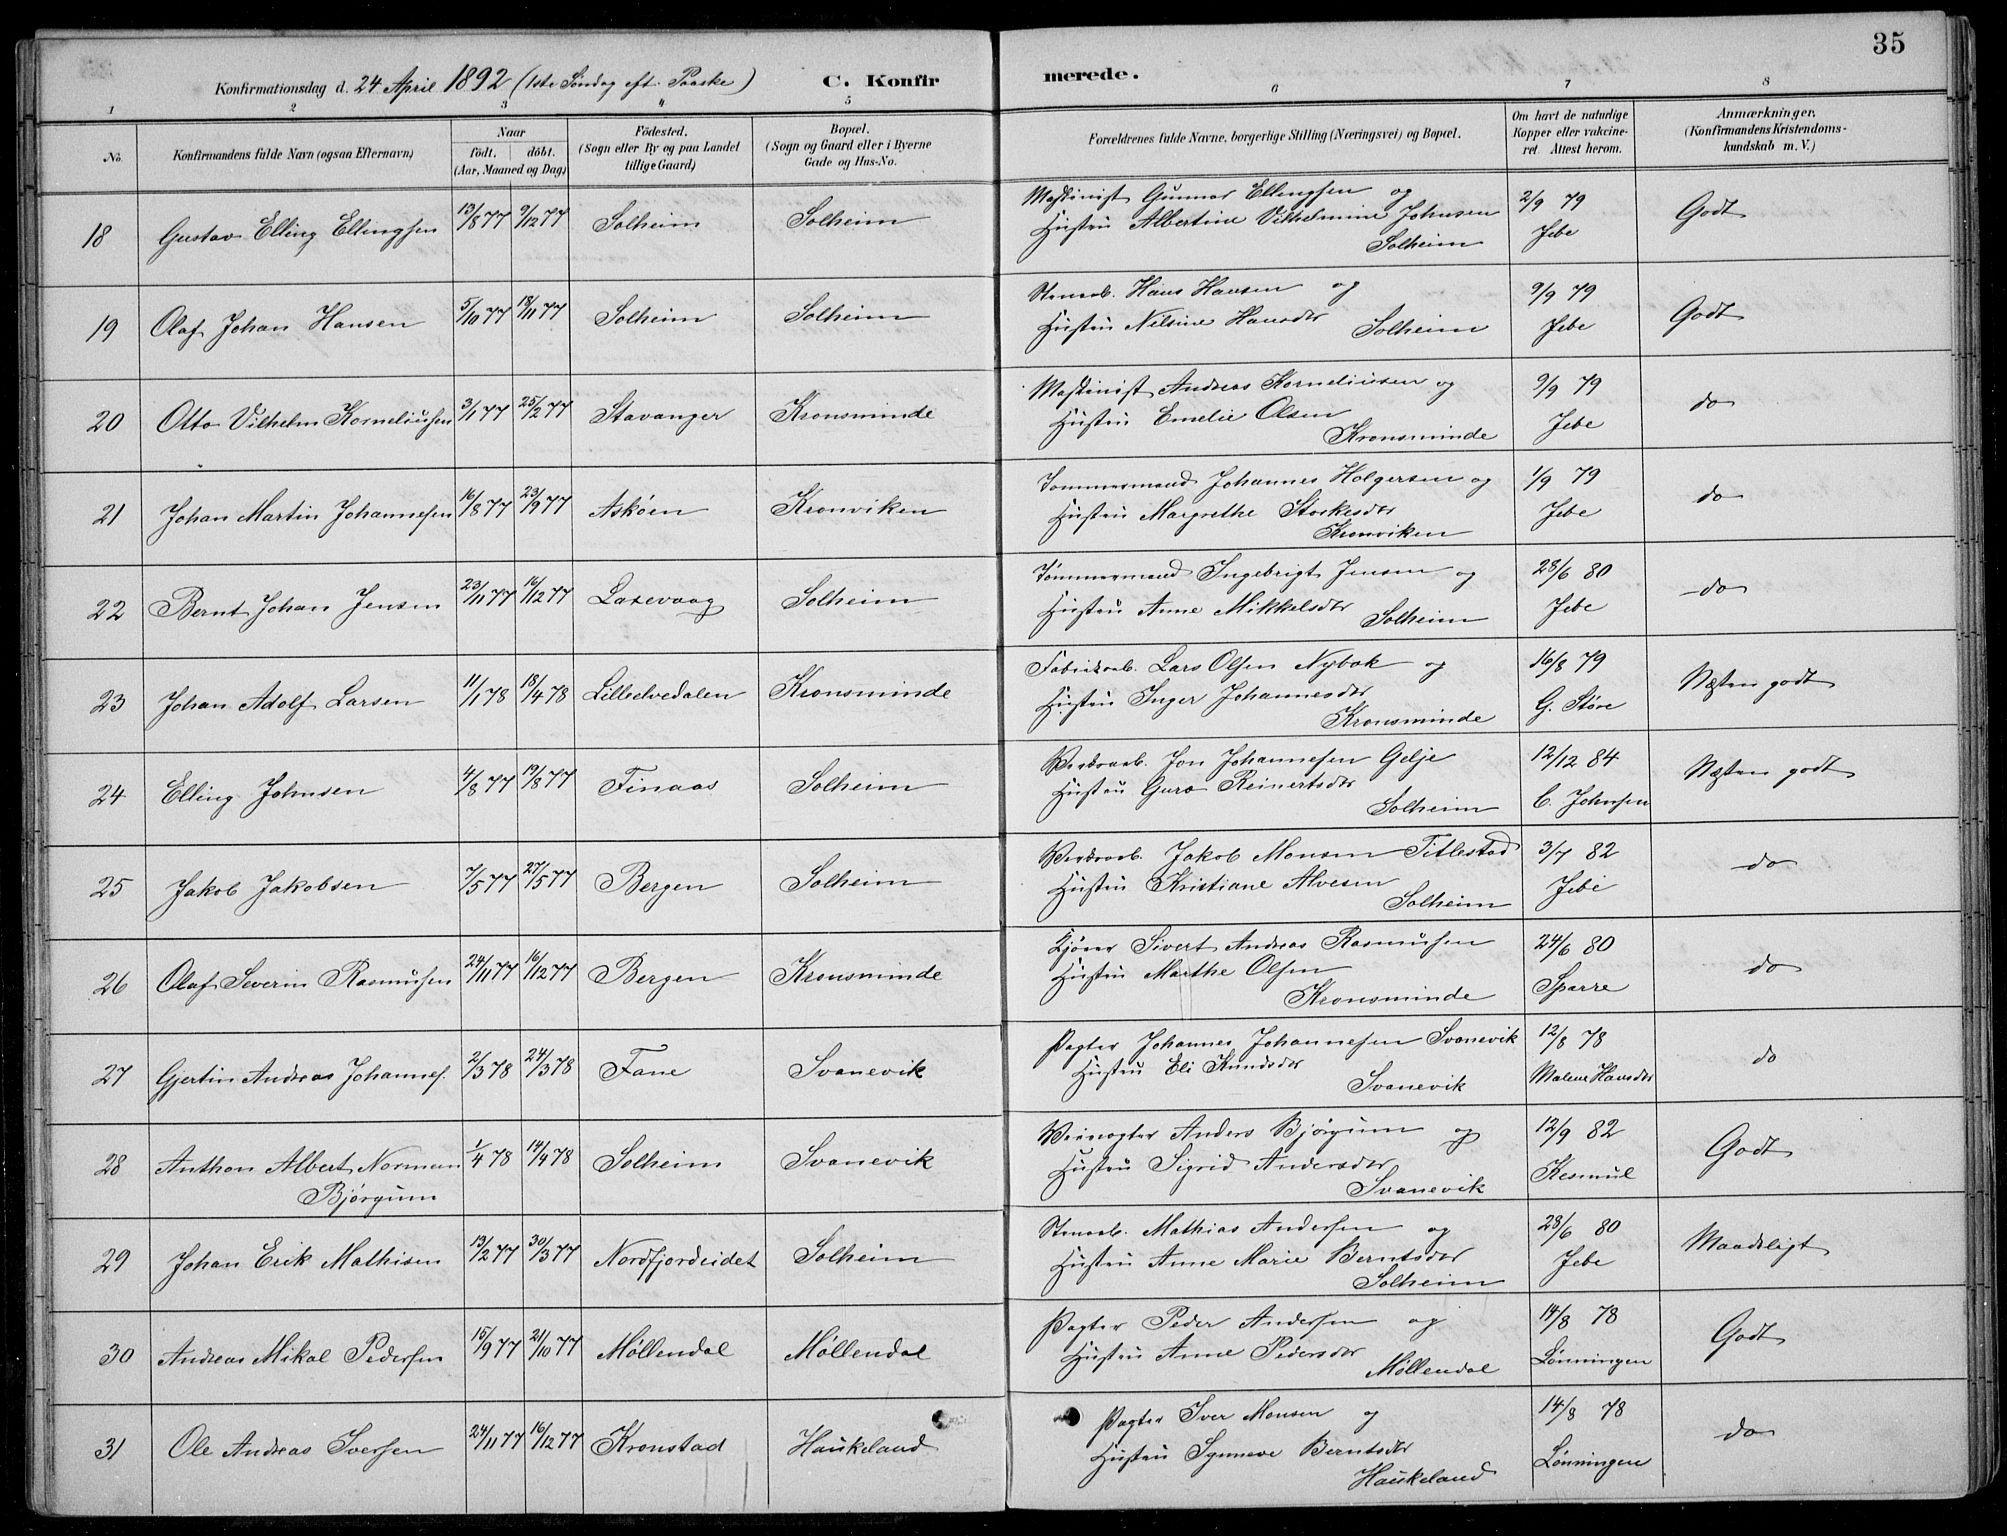 35
Konfirmationsdag d. 24 April 1892 (1ste Søndag eft. Paaske) C. Konfirmerede.
1 2 3 4 5 6 7 8
No. Konfirmandens fulde Navn (ogsaa Efternavn) Naar födt. döbt. (Aar, Maaned og Dag) Födested. (Sogn eller By og paa Landet tillige Gaard) Bopæl. (Sogn og Gaard eller i Byerne Gade og Hus-No. Forældrenes fulde Navne, borgerlige Stilling (Næringsvei) og Bopæl. Om havt de naturlige Kopper eller vakcineret. Attest herom. Anmærkninger. (Konfirmandens Kristendomskundskab m. V.)
18 Gustav Elling Ellingsen 13/8 77 9/12 77 Solheim Solheim Maskinist Gunnar Ellingsen og 2/9 79 Godt
Hustru Albertine Vilhelmine Johnsen Jebe
Solheim
19 Olaf Johan Hansen 5/10 77 18/11 77 Solheim Solheim Stenarb. Hans Hansen og 9/9 79 Godt
Hustru Nilsine Hansdtr Solheim Jebe
20 Otto Vilhelm Korneliussen 3/1 77 25/2 77 Stavanger Kronsminde Maskinist Andreas Korneliusen og 9/9 79 do
Hustru Emelie Olsen Jebe
Kronsminde
21 Johan Martin Johannesen 16/8 77 23/9 77 Askøen Kronviken Tømmermand Johannes Holgersen og 1/9 79 do
Hustru Margrethe Storkesdtr Jebe
Kronviken
22 Bernt Johan Jensen 23/11 77 16/12 77 Laxevaag Solheim Tømmermand Ingebrigt Jensen og 28/6 80 do
Hustru Anne Mikkelsdtr Solheim Jebe
23 Johan Adolf Larsen 11/1 78 18/4 78 Lilleelvedalen Kronsminde Fabrikarb. Lars Olsen Nybak og 16/8 79 Næsten godt
Hustru Inger Johannesdtr G. Støre
Kronsminde
24 Elling Johnsen 4/8 77 19/8 77 Finaas Solheim Verksarb. Jon Johannesen Gilje 12/12 84 Næsten godt
Hustru Guro Reinertsdtr C. Johnsen
Solheim
25 Jakob Jakobsen 7/5 77 27/5 77 Bergen Solheim Verksarb. Jakob Monsen Titlestad 3/7 82 do
Hustru Kristiane Alvesen Jebe
Solheim
26 Olaf Severin Rasmussen 24/11 77 16/12 77 Bergen Kronsminde Kjører Sivert Andreas Rasmussen 24/6 80 do
Hustru Marthe Olsen Sparre
Kronsminde
27 Gjertin Andreas Johannes. 2/3 78 24/3 78 Fane Svanevik Pagter Johannes Johannesen Svanevik 12/8 78 do
Hustru Eli Knudsdtr Malene Hansdtr
Svanevik
28 Anthon Albert Norman 1/4 78 14/4 78 Solheim Svanevik Veivogter Anders Bjørgum og 12/9 82 Godt
Bjørgum Hustru Sigrid Andersdtr Kesmul
Svanevik
29 Johan Erik Mathisen 13/2 77 30/3 77 Nordfjordeidet Solheim Stenarb. Mathias Andersen og 28/6 80 Maadeligt
Hustru Anne Marie Berntsdtr Jebe
Solheim
30 Andreas Mikal Pedersen 15/9 77 21/10 77 Møllendal Møllendal Pagter Peder Andersen og 14/8 78 Godt
Hustru Anne Pedersdtr Lønningen
Møllendal
31 Ole Andreas Iversen 24/11 77 16/12 77 Kronstad Haukeland Pagter Iver Monsen og 14/8 78 do
Hustru Synneve Berntsdtr Lønningen
Haukeland